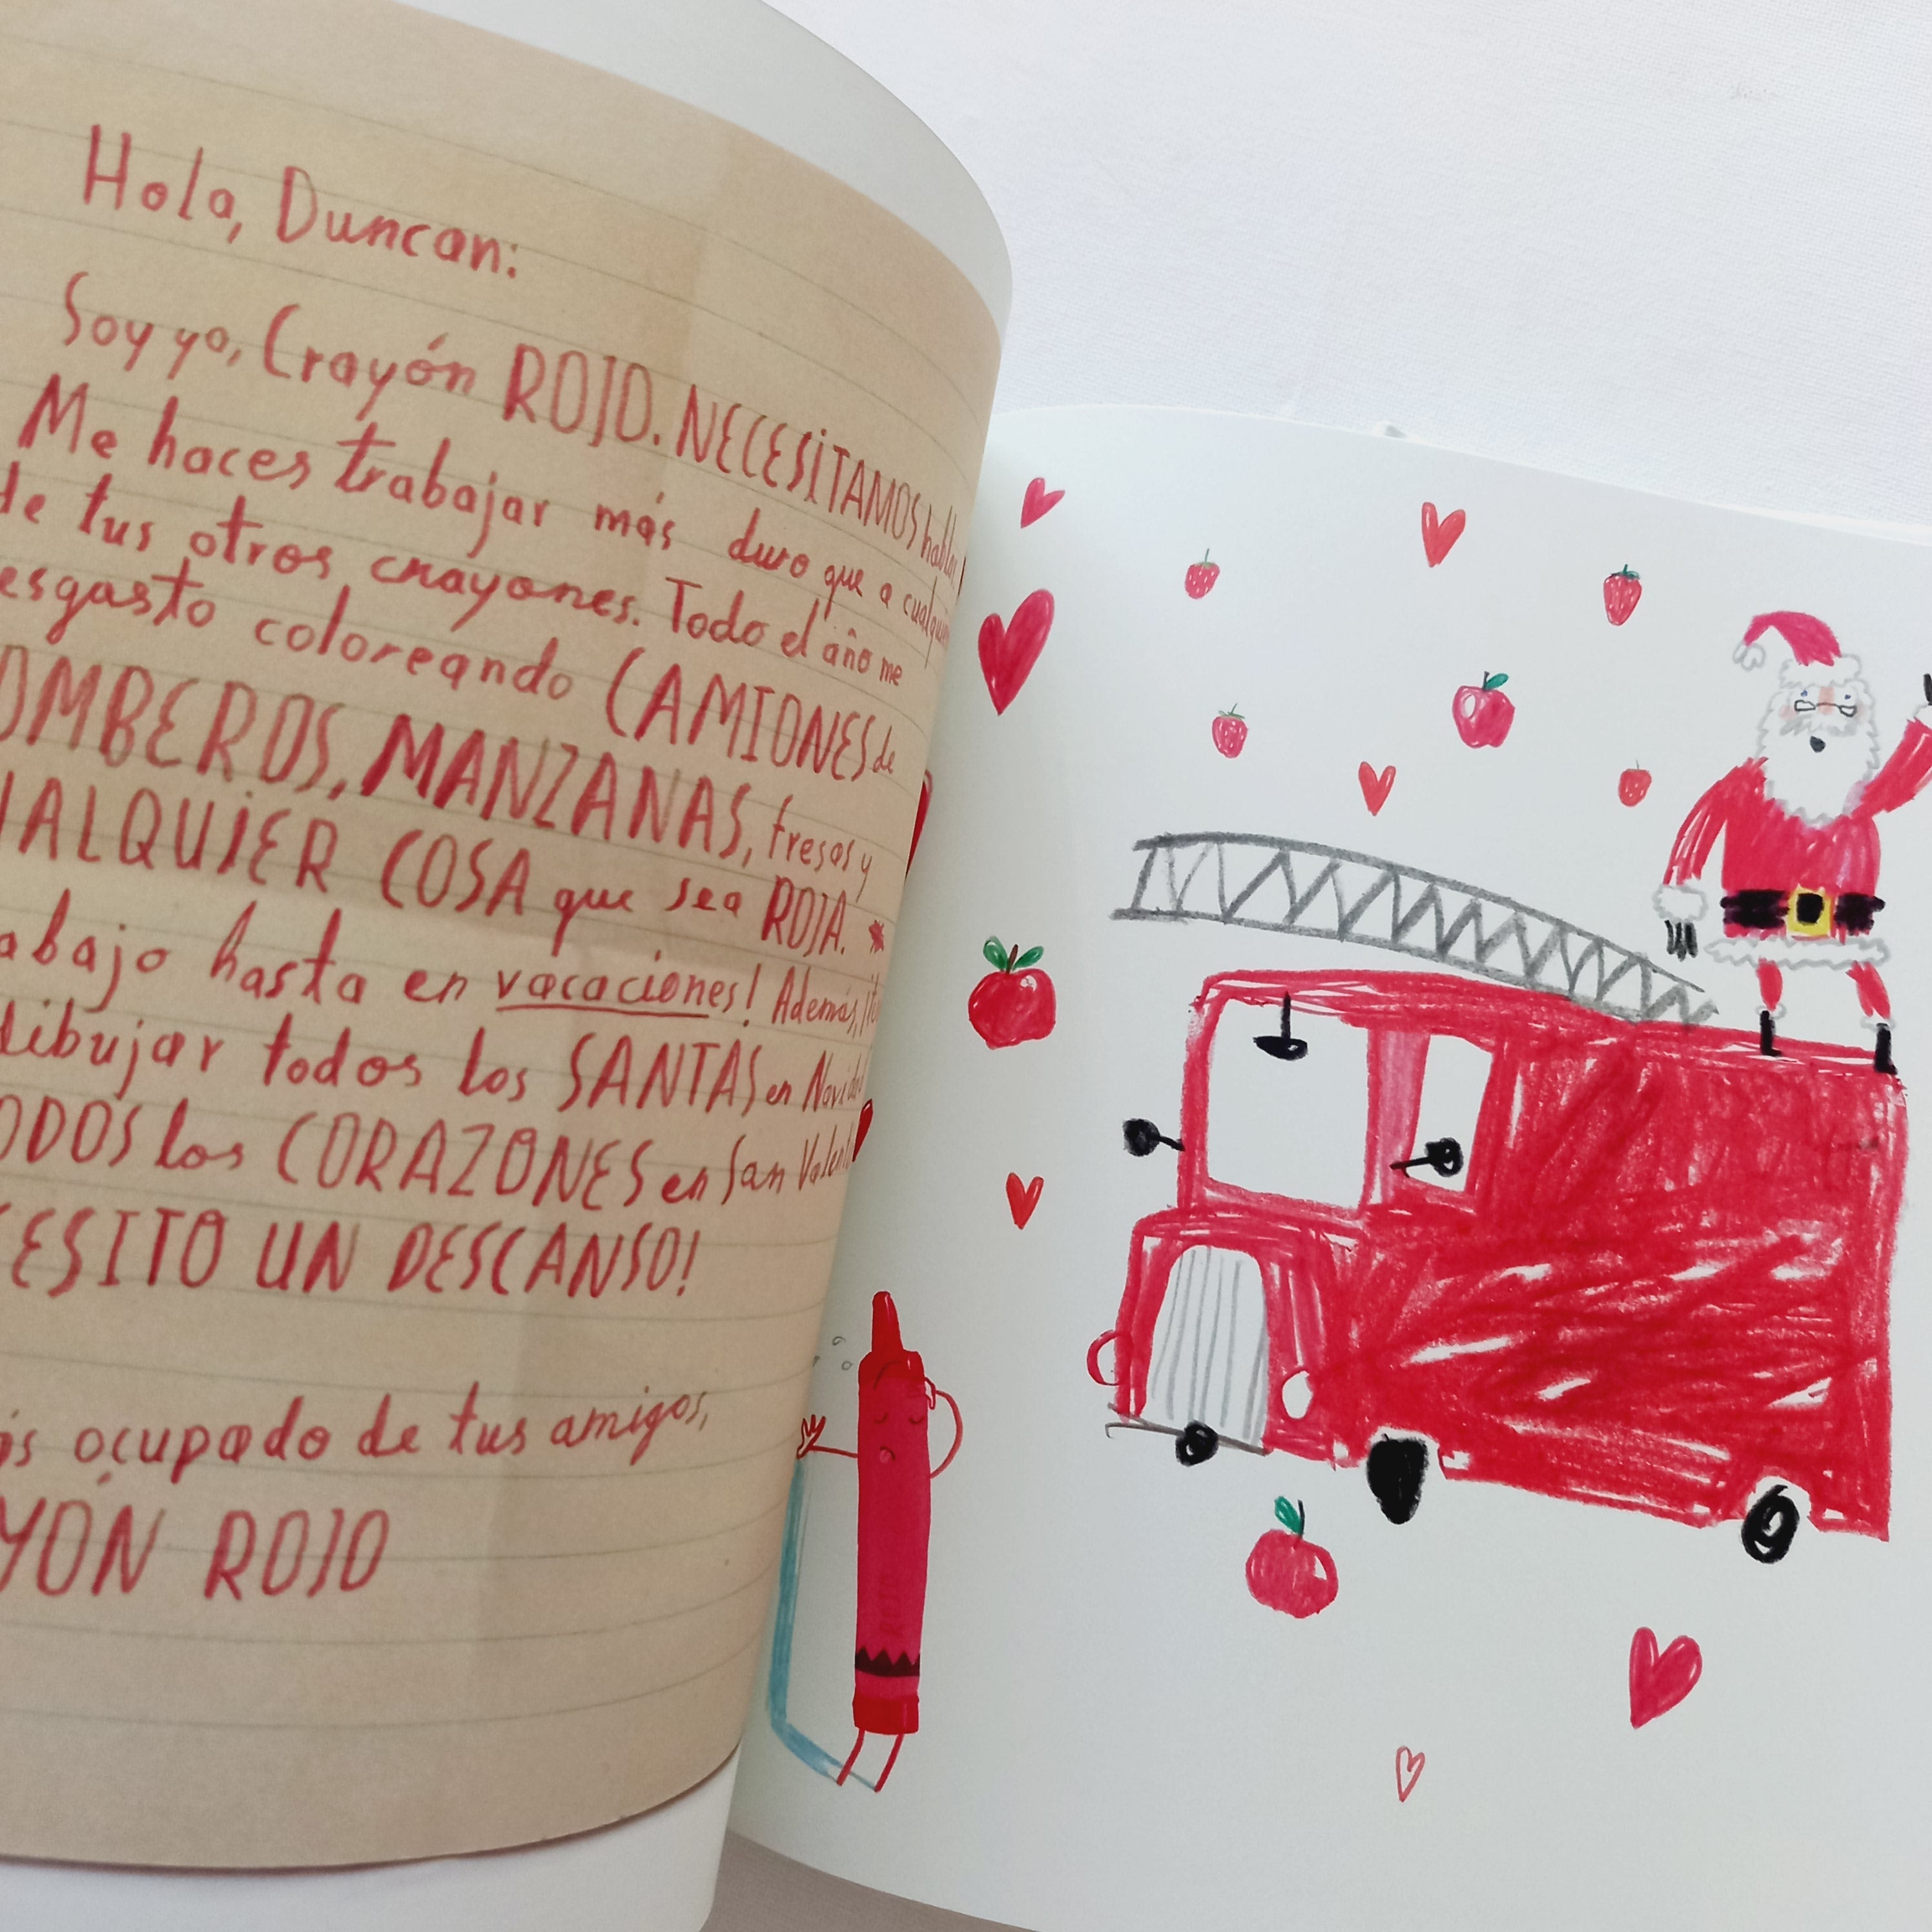 Hola, Duncan:
Soy yo, Crayón ROJO. NECESITAMOS hablar
Me haces trabajar más duro que a
de tus otros crayones. Todo el año me
esgasto coloreando CAMIONES de
OMBEROS, MANZANAS, fresas y
UALQUIER COSA que sea ROJA.
abajo hasta en vacaciones! Además,
dibujar todos los SANTAS en
ODOS los CORAZONES en San
ESITO UN DESCANSO!
ás ocupado de tus amigos,
YÓN ROJO